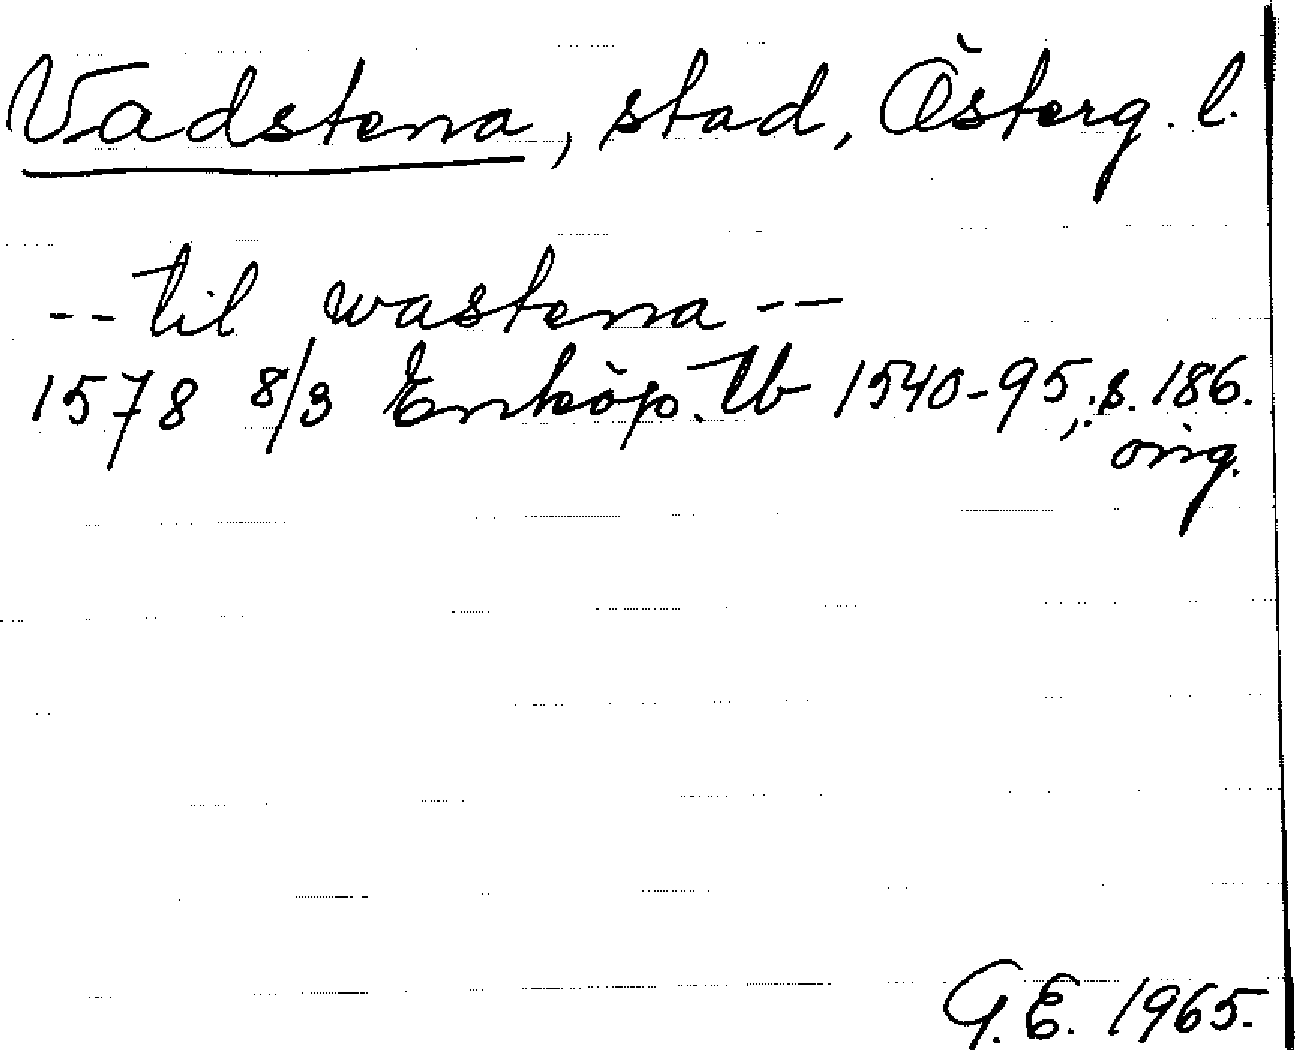 Vadstena, stad, Österg. l.
-- til wastena --
1578 8/3 Enköp. Tb 1540-95, s. 186.
orig.
G. E. 1965.